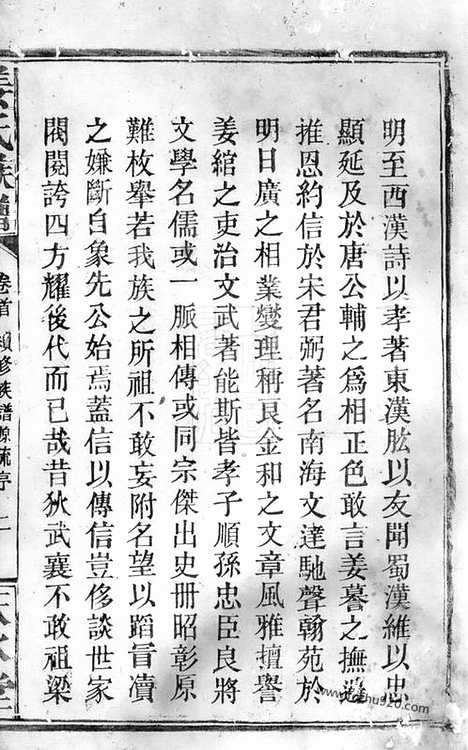 明至西漢詩以孝著東漢肱以友聞蜀漢維以忠
顯延及於唐公輔之為相正色敢言姜謩之撫邊
推恩約信於宋君弼著名南海文達馳聲翰苑於
明日廣之相業燮理稱良金和之文章風雅擅譽
姜綰之吏治文武著能斯皆孝子順孫忠臣良將
文學名儒或一脈相傳或同宗傑出史冊昭彰原
難枚舉若我族之所祖不敢妄附名望以蹈冒瀆
之嫌斷自象先公始焉蓋信以傳信豈侈談世家
閥閱誇四方耀後代而已哉昔狄武襄不敢祖梁
姜氏族譜
卷首 續修族譜源流序 二